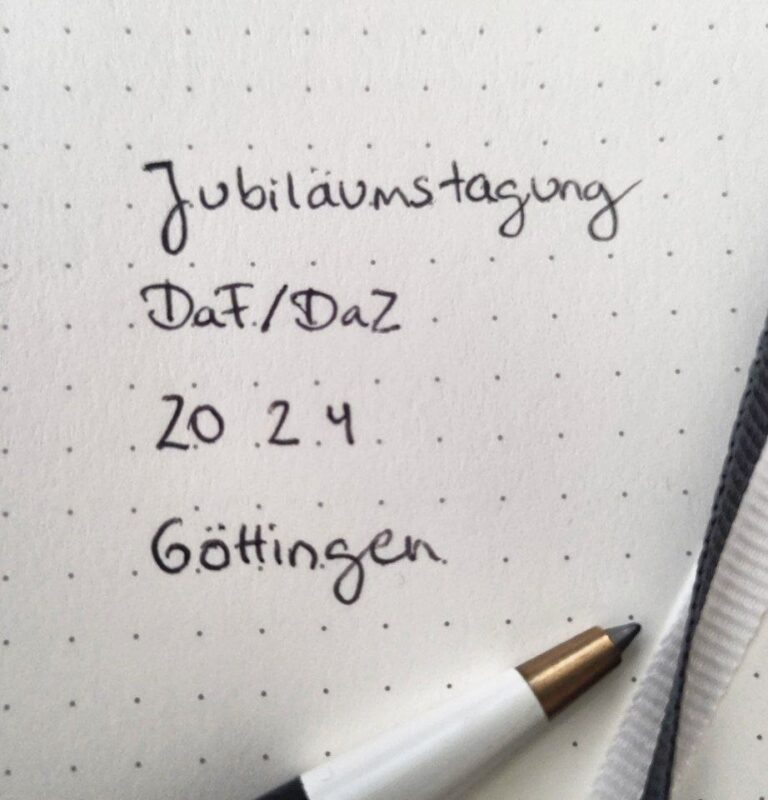 Jubiläumstagung
DaF/DaZ
20 24
Göttingen